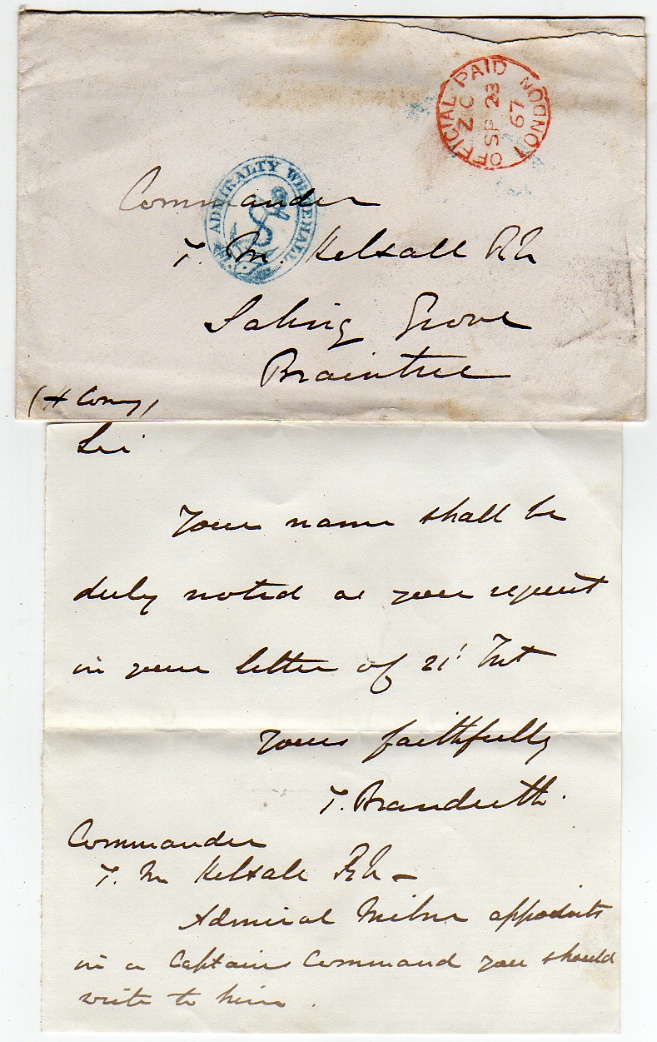 OFFICIAL PAID LONDON
Z C
SP 23
67
ADMIRALTY WHITEHALL
Commander
T. M. Kelsall RN
Saling Grove
Braintree
Sir
Your name shall be
duly noted as your request
in your letter of 21st Inst
Yours faithfully
T. Brandreth.
Commander
T. M Kelsall RN –
Admiral Milne appoints
in a Captains Command you should
write to him.